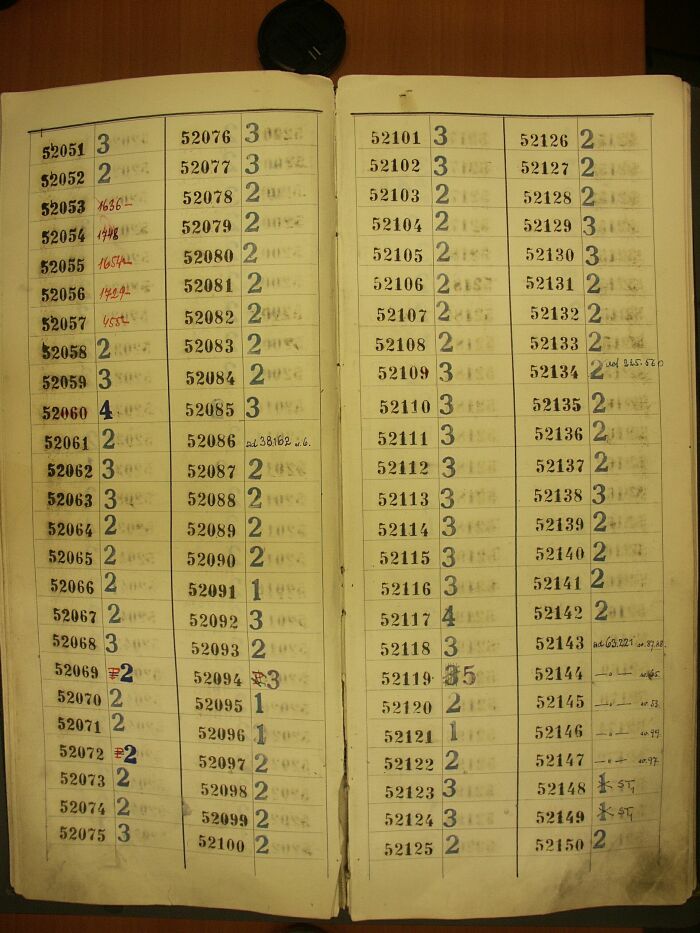 52051 3
52052 2
52053 1636-
52054 1748
52055
52056 1729-
52057
52058 2
52059 3
52060 4
52061 2
52062 3
52063 3
52064 2
52065 2
52066 2
52067 2
52068 3
52069 2
52070 2
52071 2
52072 2
52073 2
52074 2
52075 3
52076 3
52077 3
52078 2
52079 2
52080 2
52081 2
52082 2
52083 2
52084 2
52085 3
52086 ad 38162
52087 2
52088 2
52089 2
52090 2
52091 1
52092 3
52093 2
52094 3
52095 1
52096 1
52097 2
52098 2
52099 2
52100 2
52101 3
52102 3
52103 2
52104 2
52105 2
52106 2
52107 2
52108 2
52109 3
52110 3
52111 3
52112 3
52113 3
52114 3
52115 3
52116 3
52117 4
52118 3
52119 35
52120 2
52121 1
52122 2
52123 3
52124 3
52125 2
52126 2
52127 2
52128 2
52129 3
52130 3
52131 2
52132 2
52133 2
52134 2
52135 2
52136 2
52137 2
52138 3
52139 2
52140 2
52141 2
52142 2
52143 ad 63.221
52144 -"-
52145 -"-
52146 -"-
52147 -"-
52148 1 ST,
52149 1 ST,
52150 2